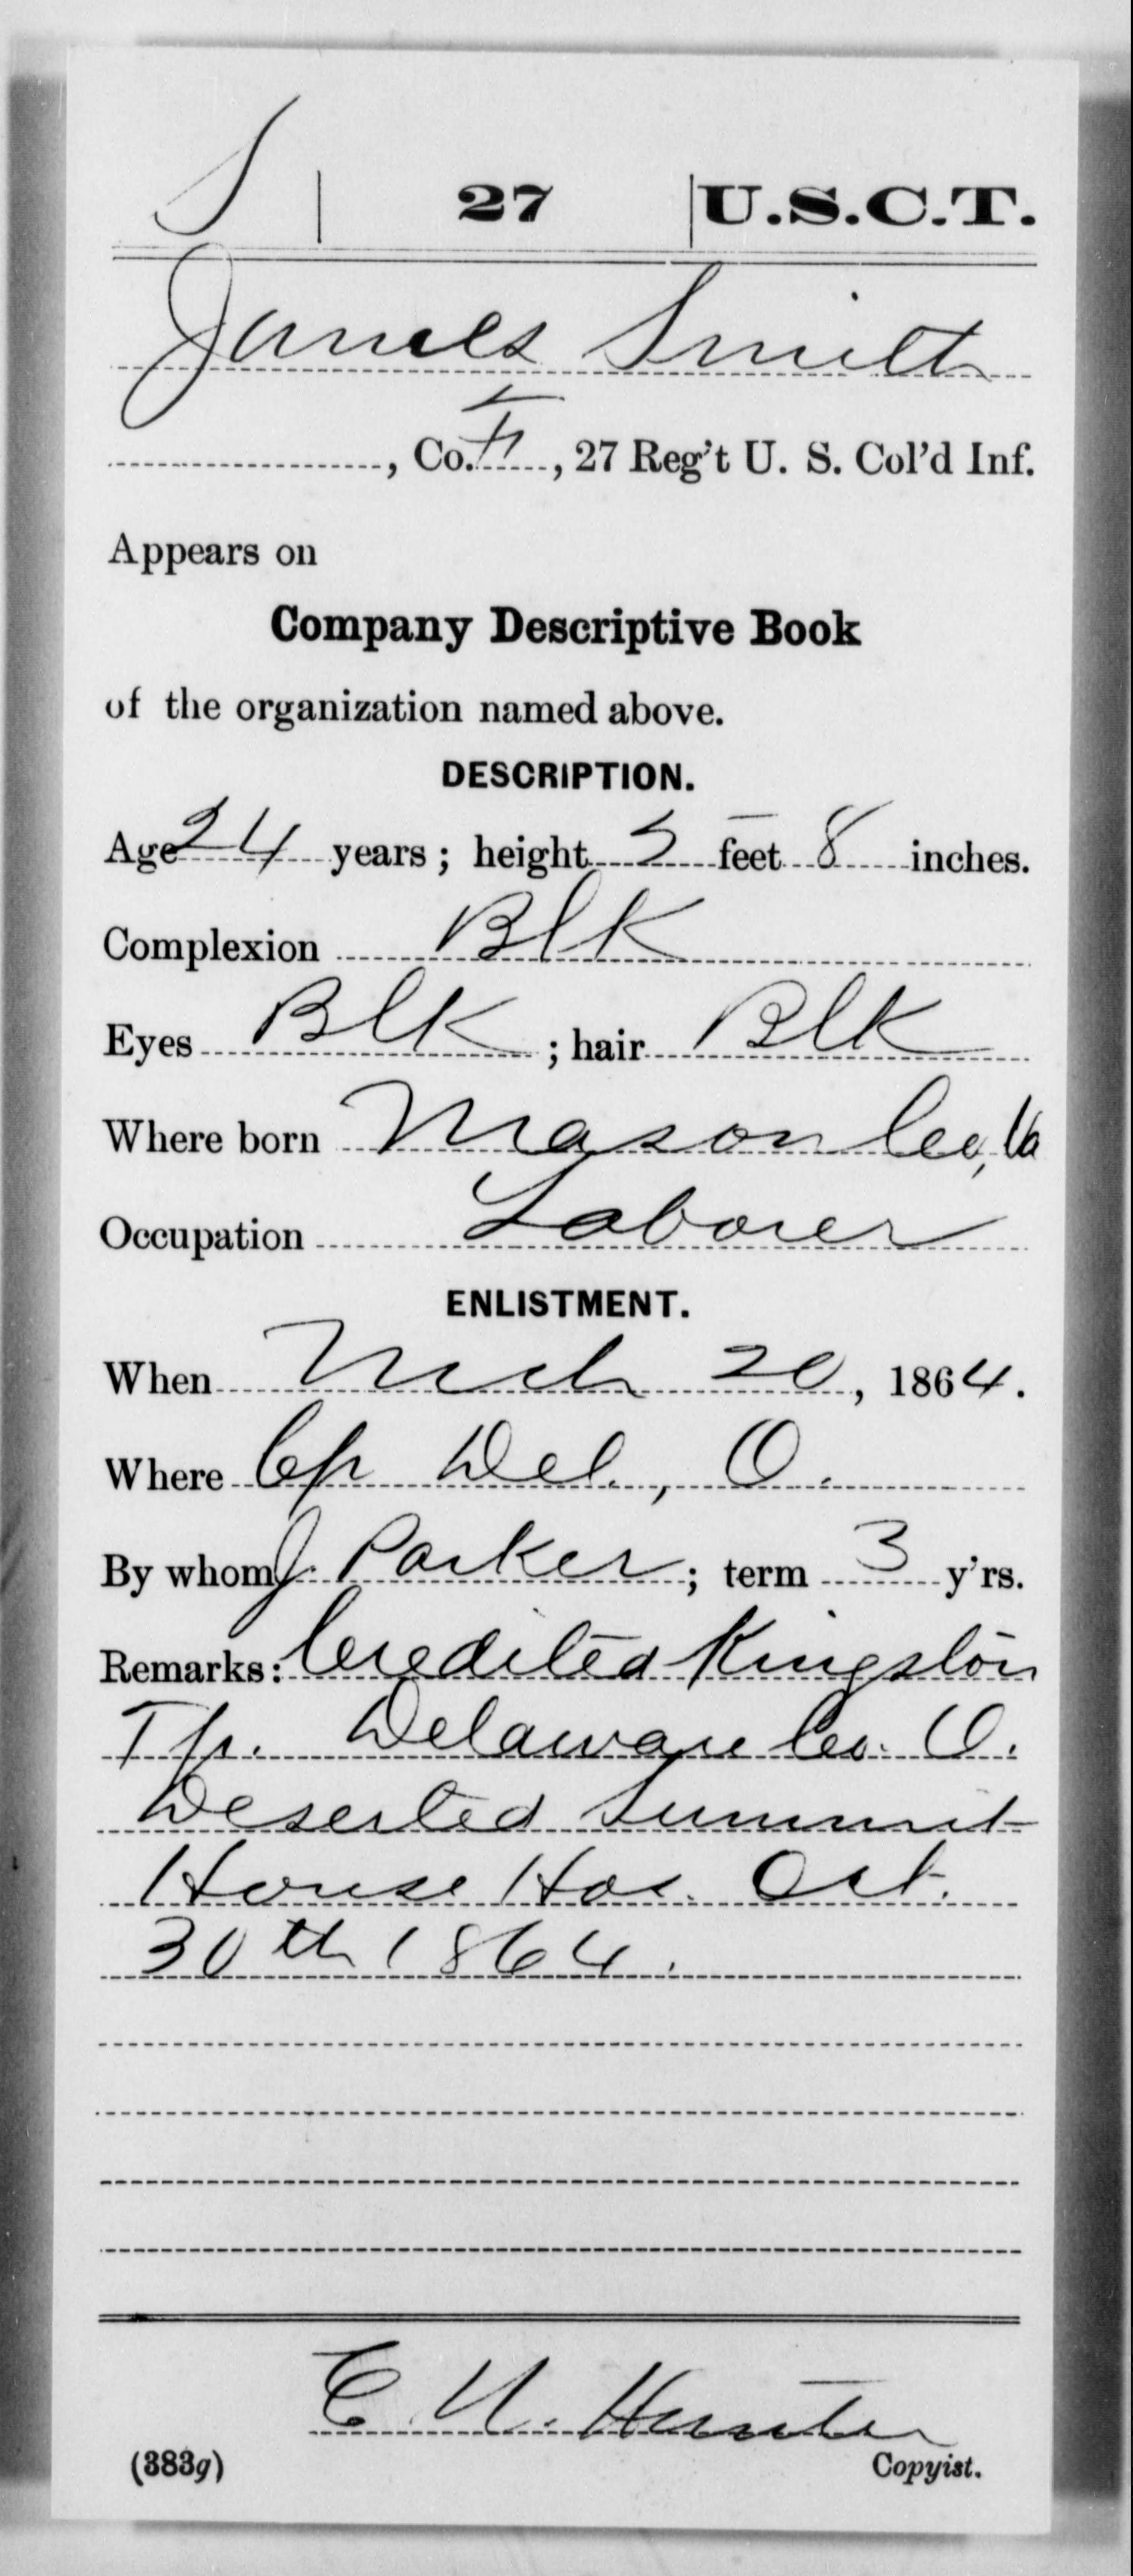 S | 27 | U.S.C.T.
James Smith
, Co. F, 27 Reg't U. S. Col'd Inf.
Appears on
Company Descriptive Book
of the organization named above.
DESCRIPTION.
Age 24 years; height 5 feet 8 inches.
Complexion Blk
Eyes Blk; hair Blk
Where born Mason Co, Va
Occupation Laborer
ENLISTMENT.
When Mch 20, 1864.
Where Cp Del., O.
By whom J. Parker; term 3 y'rs.
Remarks: Credited Kingston
Tp. Delaware Co. O.
Deserted Summit
House Hos. Oct.
30th 1864.
C. N. Hunter
(383g) Copyist.